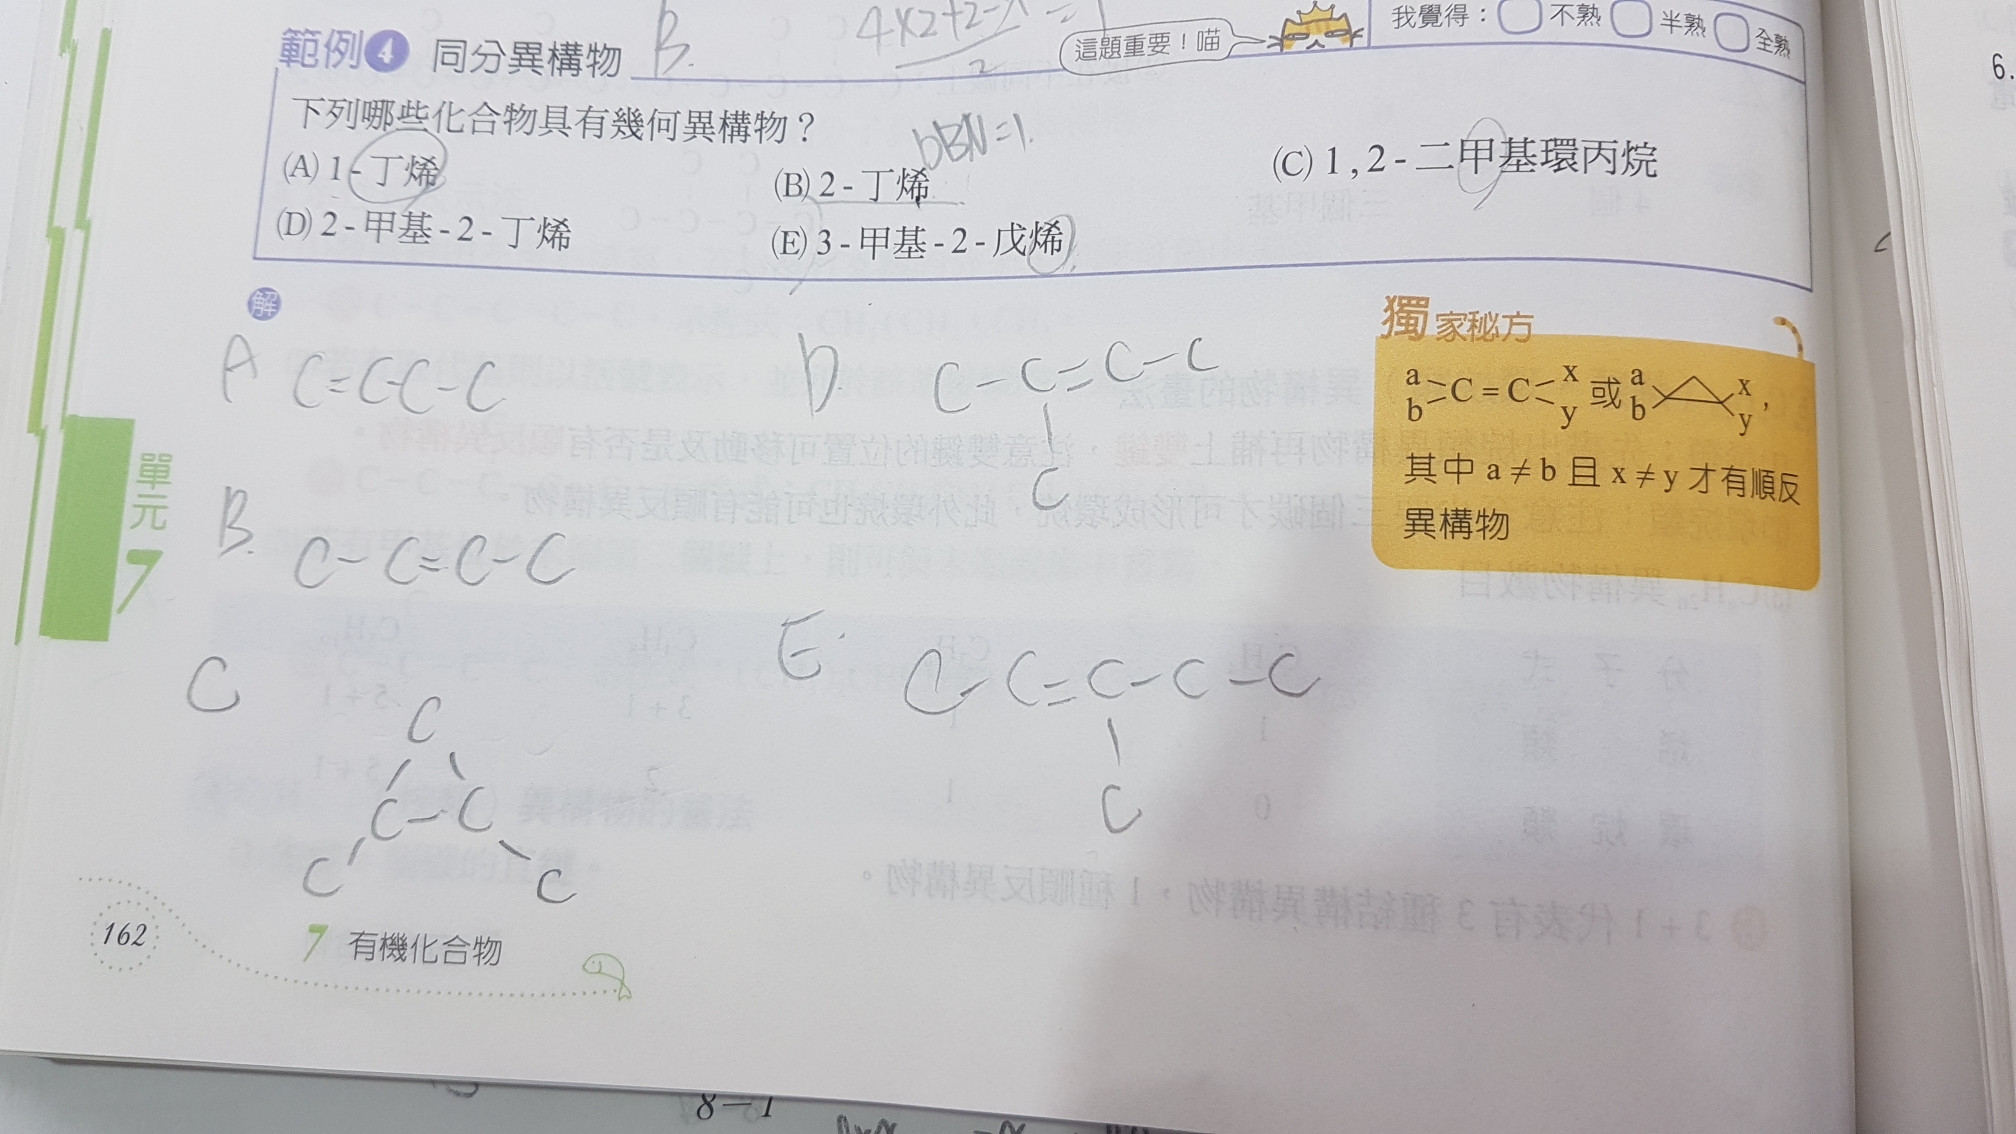 範例4 同分異構物 B. 4×2+2-
2
這題重要！喵
我覺得：不熟 半熟 全熟
下列哪些化合物具有幾何異構物？
DBN=1.
(A) 1 - 丁烯 (B) 2 - 丁烯 (C) 1 , 2 - 二甲基環丙烷
(D) 2 - 甲基 - 2 - 丁烯 (E) 3 - 甲基 - 2 - 戊烯
解
A C=C-C-C
B. C-C=C-C
C
C
C-C
C C
D. C-C=C-C
C
E. C-C=C-C-C
C
獨家秘方
a b C = C x y 或 a b x y ，
其中 a ≠ b 且 x ≠ y 才有順反
異構物
單元 7
162
7 有機化合物
6.
8－1